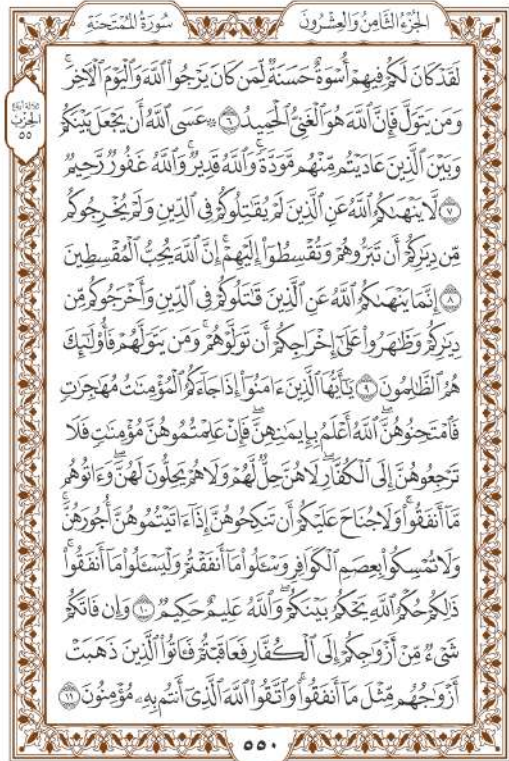 الجُزْءُ الثَّامِنُ وَالعِشْرُونَ
سُورَةُ المُمْتَحنَةِ
لَقَدْ كَانَ لَكُمْ فِيهِمْ أُسْوَةٌ حَسَنَةٌ لِّمَن كَانَ يَرْجُوا۟ ٱللَّهَ وَٱلْيَوْمَ ٱلْءَاخِرَۚ
وَمَن يَتَوَلَّ فَإِنَّ ٱللَّهَ هُوَ ٱلْغَنِىُّ ٱلْحَمِيدُ ٦ ۞ عَسَى ٱللَّهُ أَن يَجْعَلَ بَيْنَكُمْ
وَبَيْنَ ٱلَّذِينَ عَادَيْتُم مِّنْهُم مَّوَدَّةًۚ وَٱللَّهُ قَدِيرٌۚ وَٱللَّهُ غَفُورٌ رَّحِيمٌ
٧ لَّا يَنْهَىٰكُمُ ٱللَّهُ عَنِ ٱلَّذِينَ لَمْ يُقَٰتِلُوكُمْ فِى ٱلدِّينِ وَلَمْ يُخْرِجُوكُم
مِّن دِيَٰرِكُمْ أَن تَبَرُّوهُمْ وَتُقْسِطُوٓا۟ إِلَيْهِمْۚ إِنَّ ٱللَّهَ يُحِبُّ ٱلْمُقْسِطِينَ
٨ إِنَّمَا يَنْهَىٰكُمُ ٱللَّهُ عَنِ ٱلَّذِينَ قَٰتَلُوكُمْ فِى ٱلدِّينِ وَأَخْرَجُوكُم مِّن
دِيَٰرِكُمْ وَظَٰهَرُوا۟ عَلَىٰٓ إِخْرَاجِكُمْ أَن تَوَلَّوْهُمْۚ وَمَن يَتَوَلَّهُمْ فَأُو۟لَٰٓئِكَ
هُمُ ٱلظَّٰلِمُونَ ٩ يَٰٓأَيُّهَا ٱلَّذِينَ ءَامَنُوٓا۟ إِذَا جَآءَكُمُ ٱلْمُؤْمِنَٰتُ مُهَٰجِرَٰتٍ
فَٱمْتَحِنُوهُنَّۖ ٱللَّهُ أَعْلَمُ بِإِيمَٰنِهِنَّۖ فَإِنْ عَلِمْتُمُوهُنَّ مُؤْمِنَٰتٍ فَلَا
تَرْجِعُوهُنَّ إِلَى ٱلْكُفَّارِۖ لَا هُنَّ حِلٌّ لَّهُمْ وَلَا هُمْ يَحِلُّونَ لَهُنَّۖ وَءَاتُوهُم
مَّآ أَنفَقُوا۟ۚ وَلَا جُنَاحَ عَلَيْكُمْ أَن تَنكِحُوهُنَّ إِذَآ ءَاتَيْتُمُوهُنَّ أُجُورَهُنَّۚ
وَلَا تُمْسِكُوا۟ بِعِصَمِ ٱلْكَوَافِرِ وَسْـَٔلُوا۟ مَآ أَنفَقْتُمْ وَلْيَسْـَٔلُوا۟ مَآ أَنفَقُوا۟ۚ
ذَٰلِكُمْ حُكْمُ ٱللَّهِ يَحْكُمُ بَيْنَكُمْۚ وَٱللَّهُ عَلِيمٌ حَكِيمٌ ١٠ وَإِن فَاتَكُمْ
شَىْءٌ مِّنْ أَزْوَٰجِكُمْ إِلَى ٱلْكُفَّارِ فَعَاقَبْتُمْ فَـَٔاتُوا۟ ٱلَّذِينَ ذَهَبَتْ
أَزْوَٰجُهُم مِّثْلَ مَآ أَنفَقُوا۟ۚ وَٱتَّقُوا۟ ٱللَّهَ ٱلَّذِىٓ أَنتُم بِهِۦ مُؤْمِنُونَ ١١
الحِزْبُ
٥٥
٥٥٠